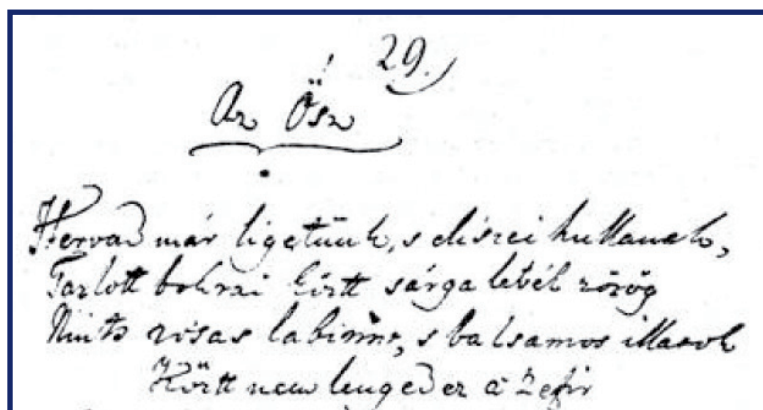 29.
Az Ősz
Hervad már ligetünk, s díszei hullanak,
Tarlott bokrai közt sárga levél zörög
Nints rósás labirinth, s balsamos illatok
Között nem lengedez a Zefir